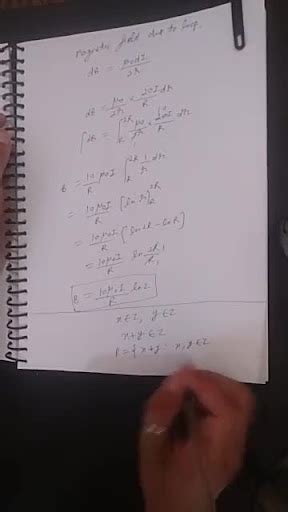 magnetic field due to loop.
dB = μ₀dI / 2r
dB = μ₀/2r × 20I/R dr
∫dB = ∫_R^2R μ₀/2r × 20I/R dr
B = 10/R μ₀I ∫_R^2R 1/r dr
= 10μ₀I/R [ln r]_R^2R
= 10μ₀I/R [ln 2R - ln R]
= 10μ₀I/R ln 2R/R
B = 10μ₀I/R ln 2
x ∈ Z, y ∈ Z
x + y ∈ Z
= { x + y : x, y ∈ Z